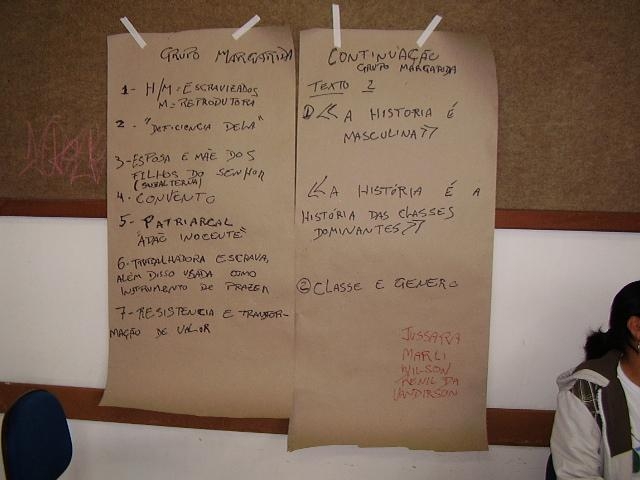 GRUPO MARGARIDA
1- H/M = ESCRAVIZADOS
M = REPRODUTORA
2- "DEFICIENCIA DELA"
3- ESPOSA E MÃE DOS
FILHOS DO SENHOR
(SUBALTERNA)
4- CONVENTO
5- PATRIARCAL
"ADÃO INOCENTE"
6- TRABALHADORA ESCRAVA,
ALÉM DISSO USADA COMO
INSTRUMENTO DE PRAZER
7- RESISTENCIA E TRANSFOR-
MAÇÃO DE VALOR
CONTINUAÇÃO
GRUPO MARGARIDA
TEXTO 2
① << A HISTORIA É
MASCULINA >>
<< A HISTÓRIA É A
HISTÓRIA DAS CLASSES
DOMINANTES >>
② CLASSE E GENERO
JUSSARA
MARLI
WILSON
RENILDA
VANDIRSON